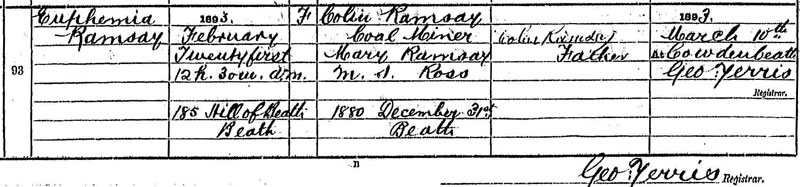 93
Euphemia
Ramsay
1893.
February
Twentyfirst
12 h. 30 m. a.m.
185 Hill of Beath
Beath
F
Colin Ramsay
Coal Miner
Mary Ramsay
M. S. Ross
1880 December 31st
Beath
Colin Ramsay
Father
1893.
March 10th
At Cowdenbeath
Geo Yerris
Registrar.
B
Geo Yerris Registrar.